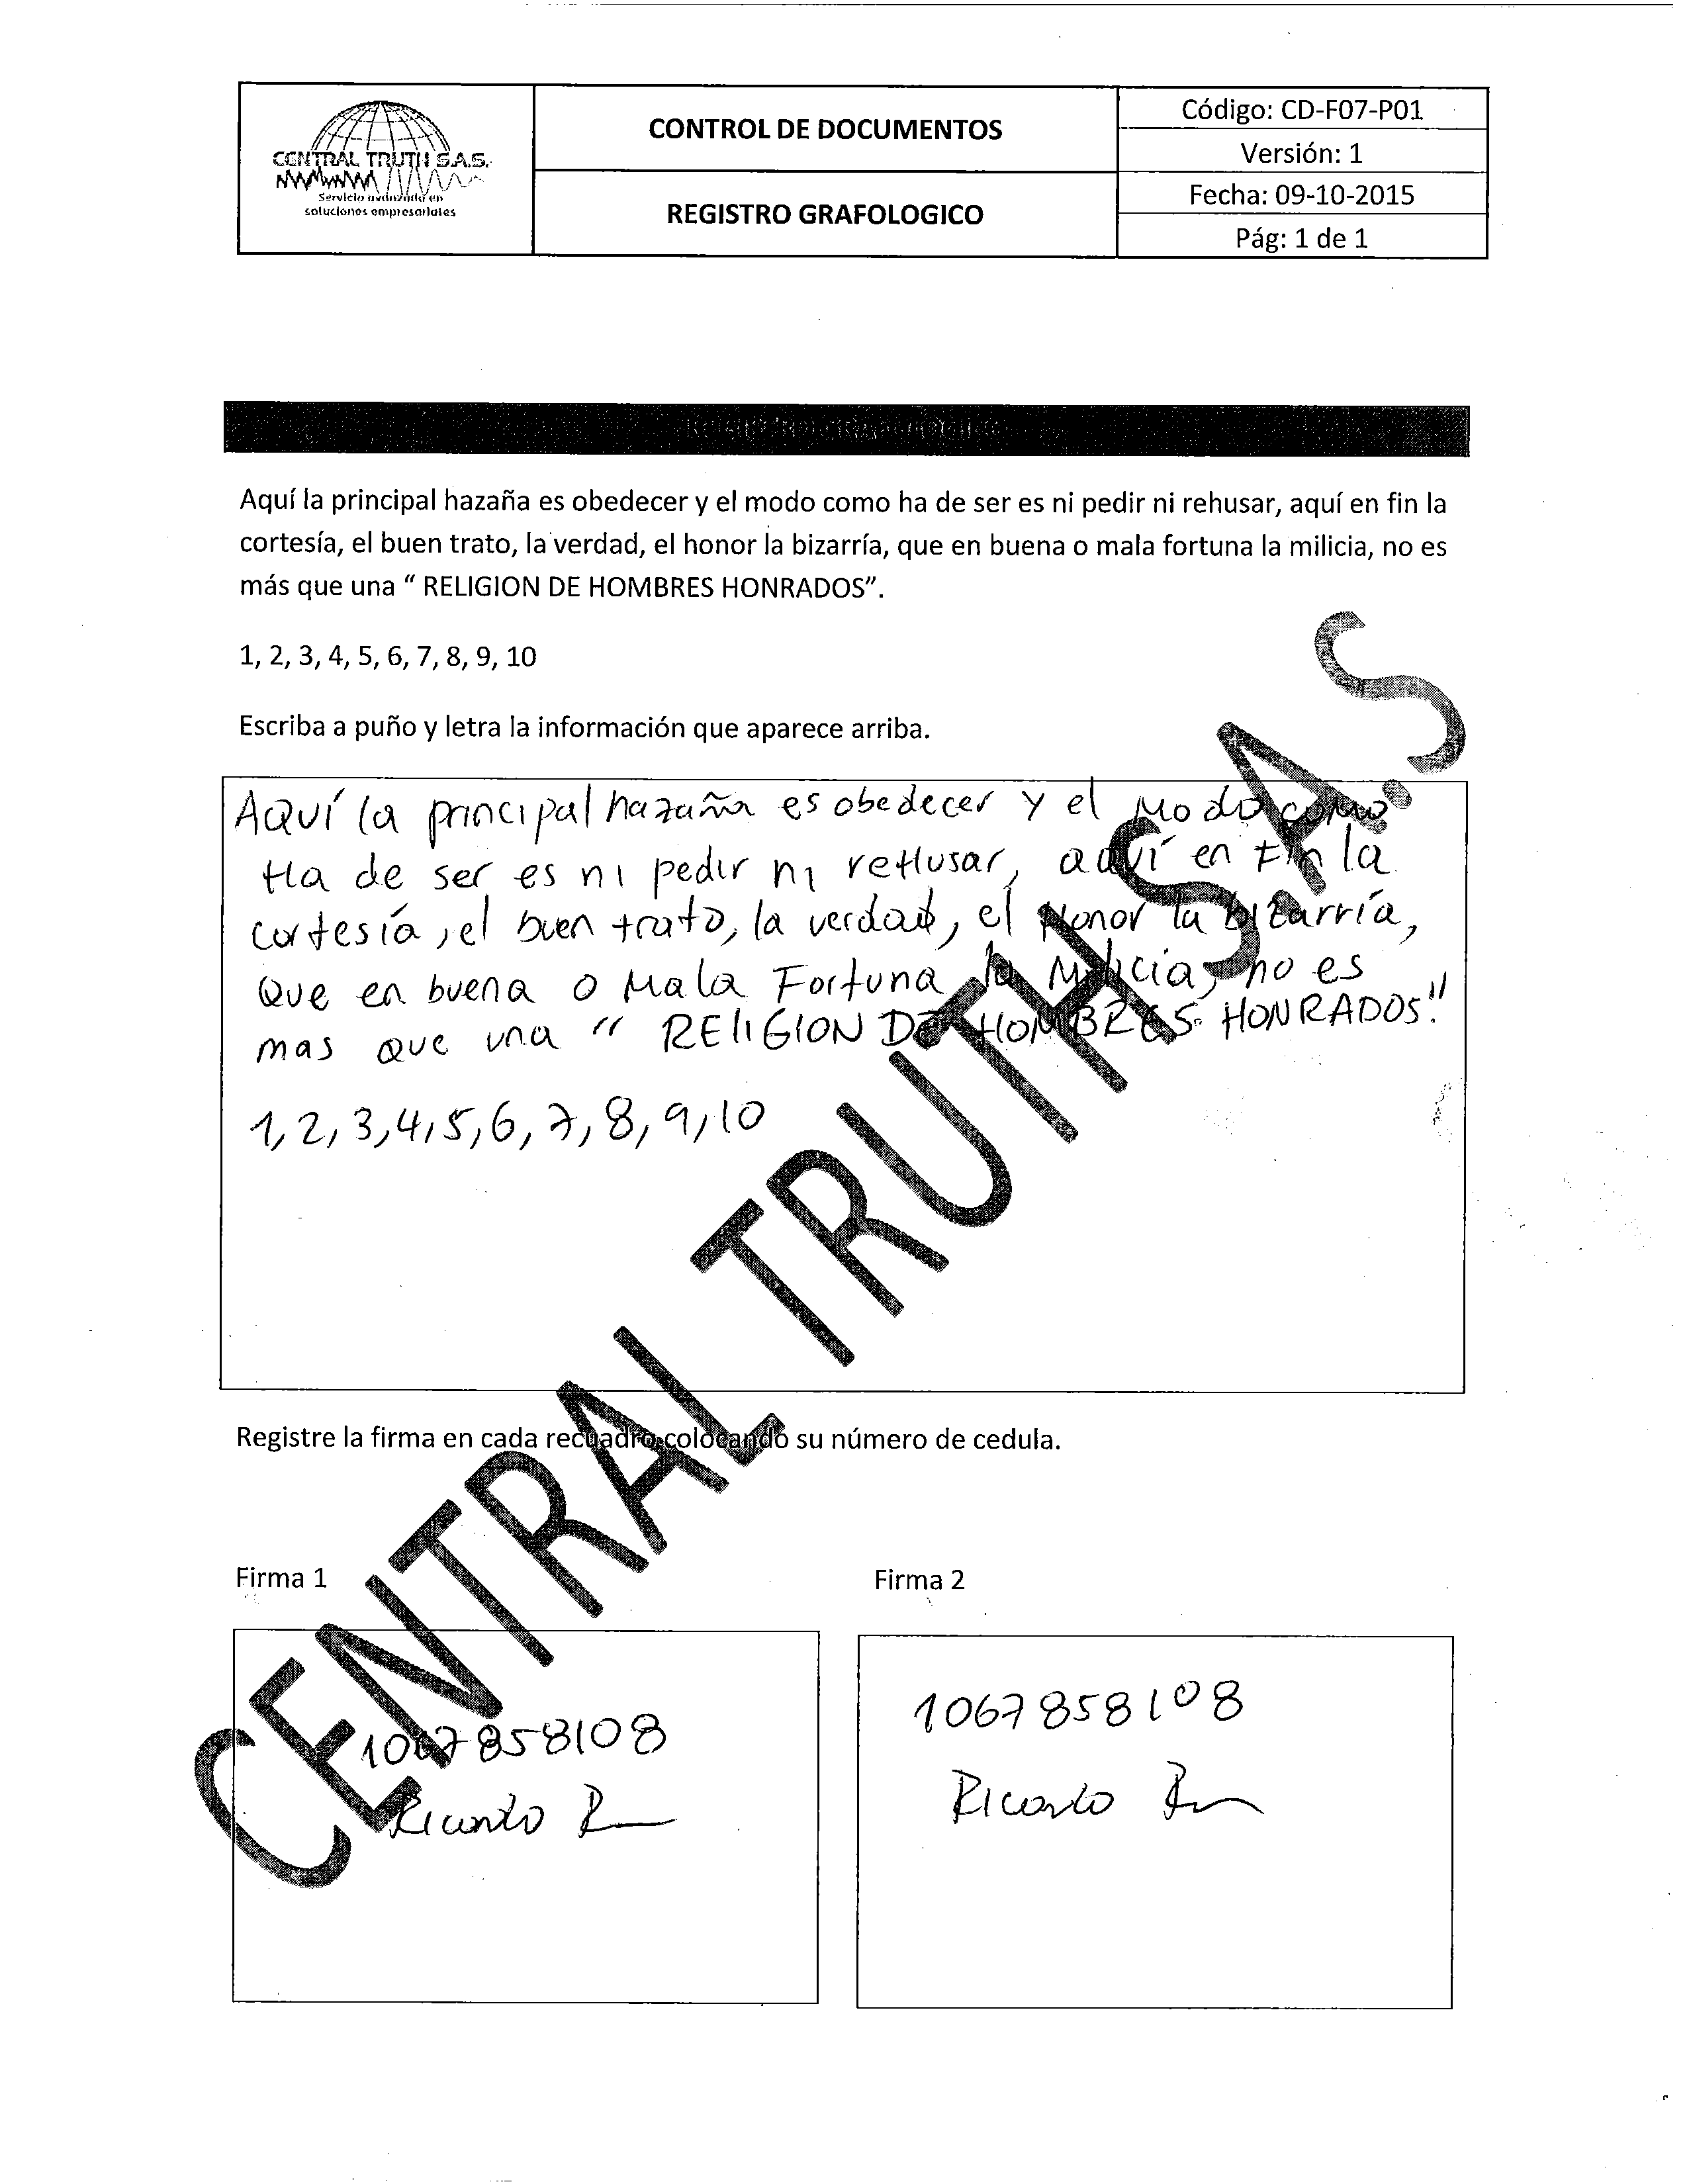 CENTRAL TRUTH S.A.S.
Servicio avanzado en
soluciones empresariales
CONTROL DE DOCUMENTOS
REGISTRO GRAFOLOGICO
Código: CD-F07-P01
Versión: 1
Fecha: 09-10-2015
Pág: 1 de 1
REGISTRO GRAFOLOGICO
Aquí la principal hazaña es obedecer y el modo como ha de ser es ni pedir ni rehusar, aquí en fin la
cortesía, el buen trato, la verdad, el honor la bizarría, que en buena o mala fortuna la milicia, no es
más que una “ RELIGION DE HOMBRES HONRADOS”.
1, 2, 3, 4, 5, 6, 7, 8, 9, 10
Escriba a puño y letra la información que aparece arriba.
AQUÍ la principal hazaña es obedecer y el Modo como
Ha de ser es ni pedir ni reHusar, aquí en Fin la
cortesía, el buen trato, la verdad, el Honor la bizarría,
Que en buena o Mala Fortuna la Milicia, no es
mas que una “ RElIGION DE HOMBRES HONRADOS."
1, 2, 3, 4, 5, 6, 7, 8, 9, 10
CENTRAL TRUTH S.A.S
Registre la firma en cada recuadro colocando su número de cedula.
Firma 1
Firma 2
1067858108
Ricardo
1067858108
Ricardo